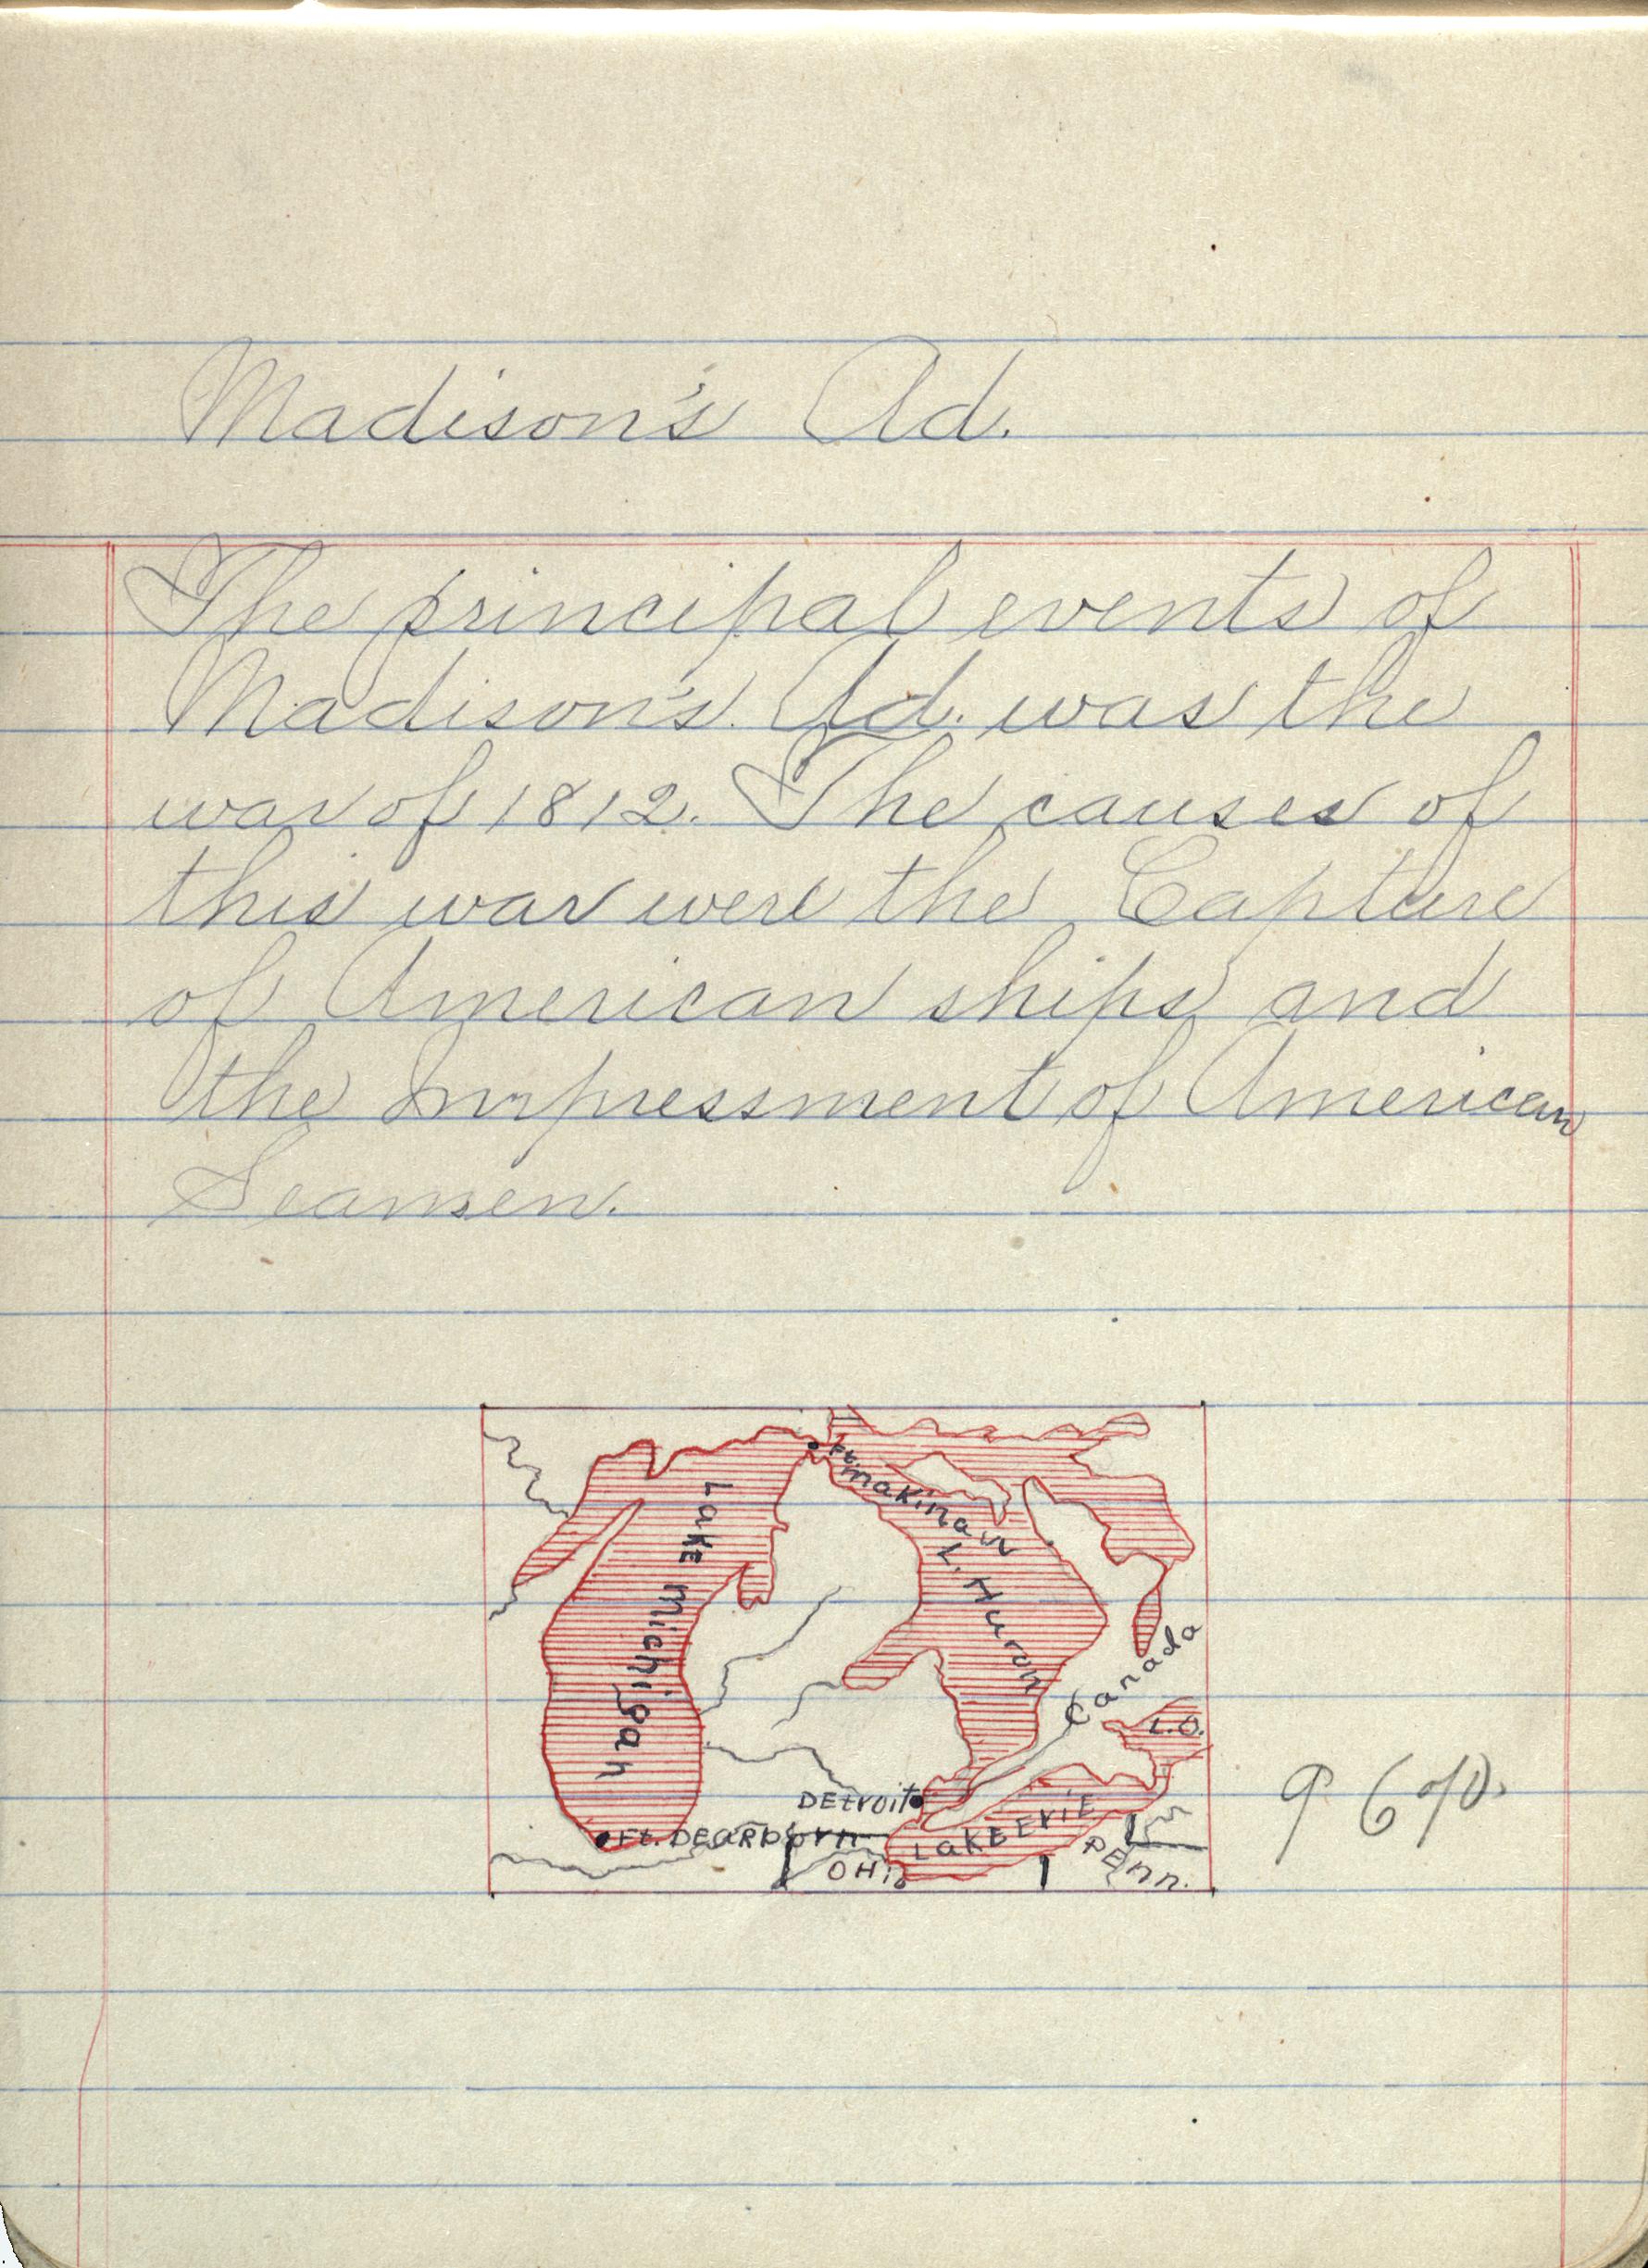 Madison's Ad.
The principal events of
Madison's. Ad. was the
war of 1812. The causes of
this war were the Capture
of American ships and
the Impressment of American
Seamen.
Ft. Makinaw
Lake Michigan
L. Huron
Canada
L.O.
Detroit
Ft. Dearborn
Lake Erie
Ohio
Penn.
96%